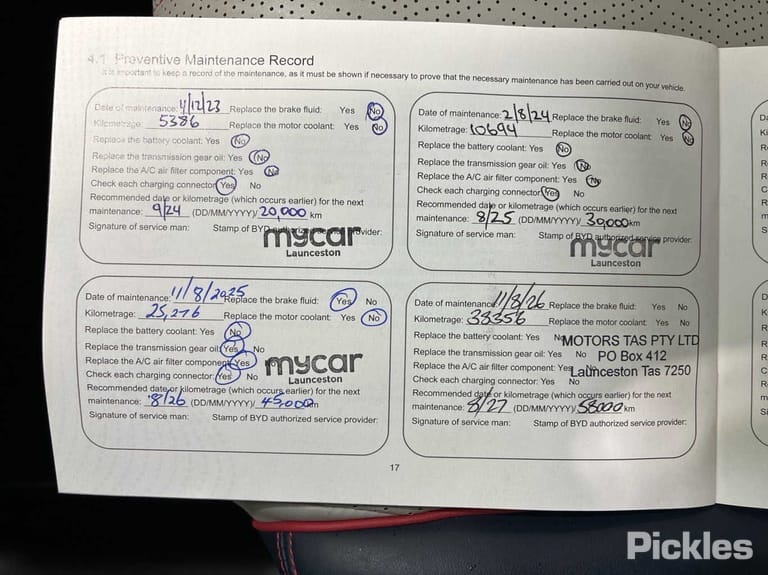 4.1 Preventive Maintenance Record
It is important to keep a record of the maintenance, as it must be shown if necessary to prove that the necessary maintenance has been carried out on your vehicle.
Date of maintenance: 4/12/23 Replace the brake fluid: Yes No
Kilometrage: 5386 Replace the motor coolant: Yes No
Replace the battery coolant: Yes No
Replace the transmission gear oil: Yes No
Replace the A/C air filter component: Yes No
Check each charging connector: Yes No
Recommended date or kilometrage (which occurs earlier) for the next
maintenance: 9/24 (DD/MM/YYYY)/ 20,000 km
Signature of service man: Stamp of BYD authorized service provider:
mycar
Launceston
Date of maintenance: 2/8/24 Replace the brake fluid: Yes No
Kilometrage: 10694 Replace the motor coolant: Yes No
Replace the battery coolant: Yes No
Replace the transmission gear oil: Yes No
Replace the A/C air filter component: Yes No
Check each charging connector: Yes No
Recommended date or kilometrage (which occurs earlier) for the next
maintenance: 8/25 (DD/MM/YYYY)/ 30,000 km
Signature of service man: Stamp of BYD authorized service provider:
mycar
Launceston
Date of maintenance: 11/8/2025 Replace the brake fluid: Yes No
Kilometrage: 25,276 Replace the motor coolant: Yes No
Replace the battery coolant: Yes No
Replace the transmission gear oil: Yes No
Replace the A/C air filter component: Yes
Check each charging connector: Yes No
Recommended date or kilometrage (which occurs earlier) for the next
maintenance: 8/26 (DD/MM/YYYY)/ 45,000 km
Signature of service man: Stamp of BYD authorized service provider:
mycar
Launceston
Date of maintenance: 11/8/26 Replace the brake fluid: Yes No
Kilometrage: 38356 Replace the motor coolant: Yes No
Replace the battery coolant: Yes No
Replace the transmission gear oil: Yes No
Replace the A/C air filter component: Yes No
Check each charging connector: Yes No
Recommended date or kilometrage (which occurs earlier) for the next
maintenance: 8/27 (DD/MM/YYYY)/ 58000 km
Signature of service man: Stamp of BYD authorized service provider:
MOTORS TAS PTY LTD
PO Box 412
Launceston Tas 7250
17
Pickles